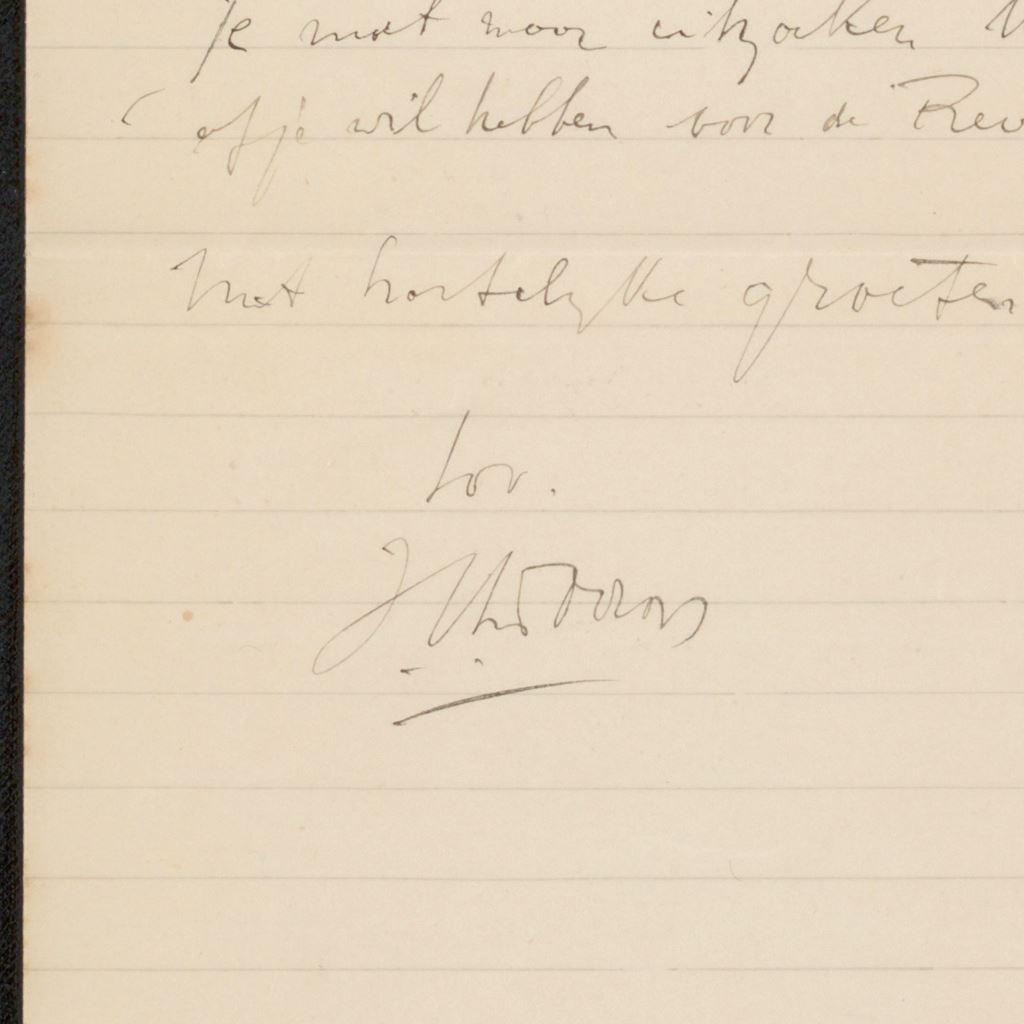 je moet maar uitzoeken
of je wil hebben voor de Rev
Met hartelijke groeten
tov.
J Th Toorop